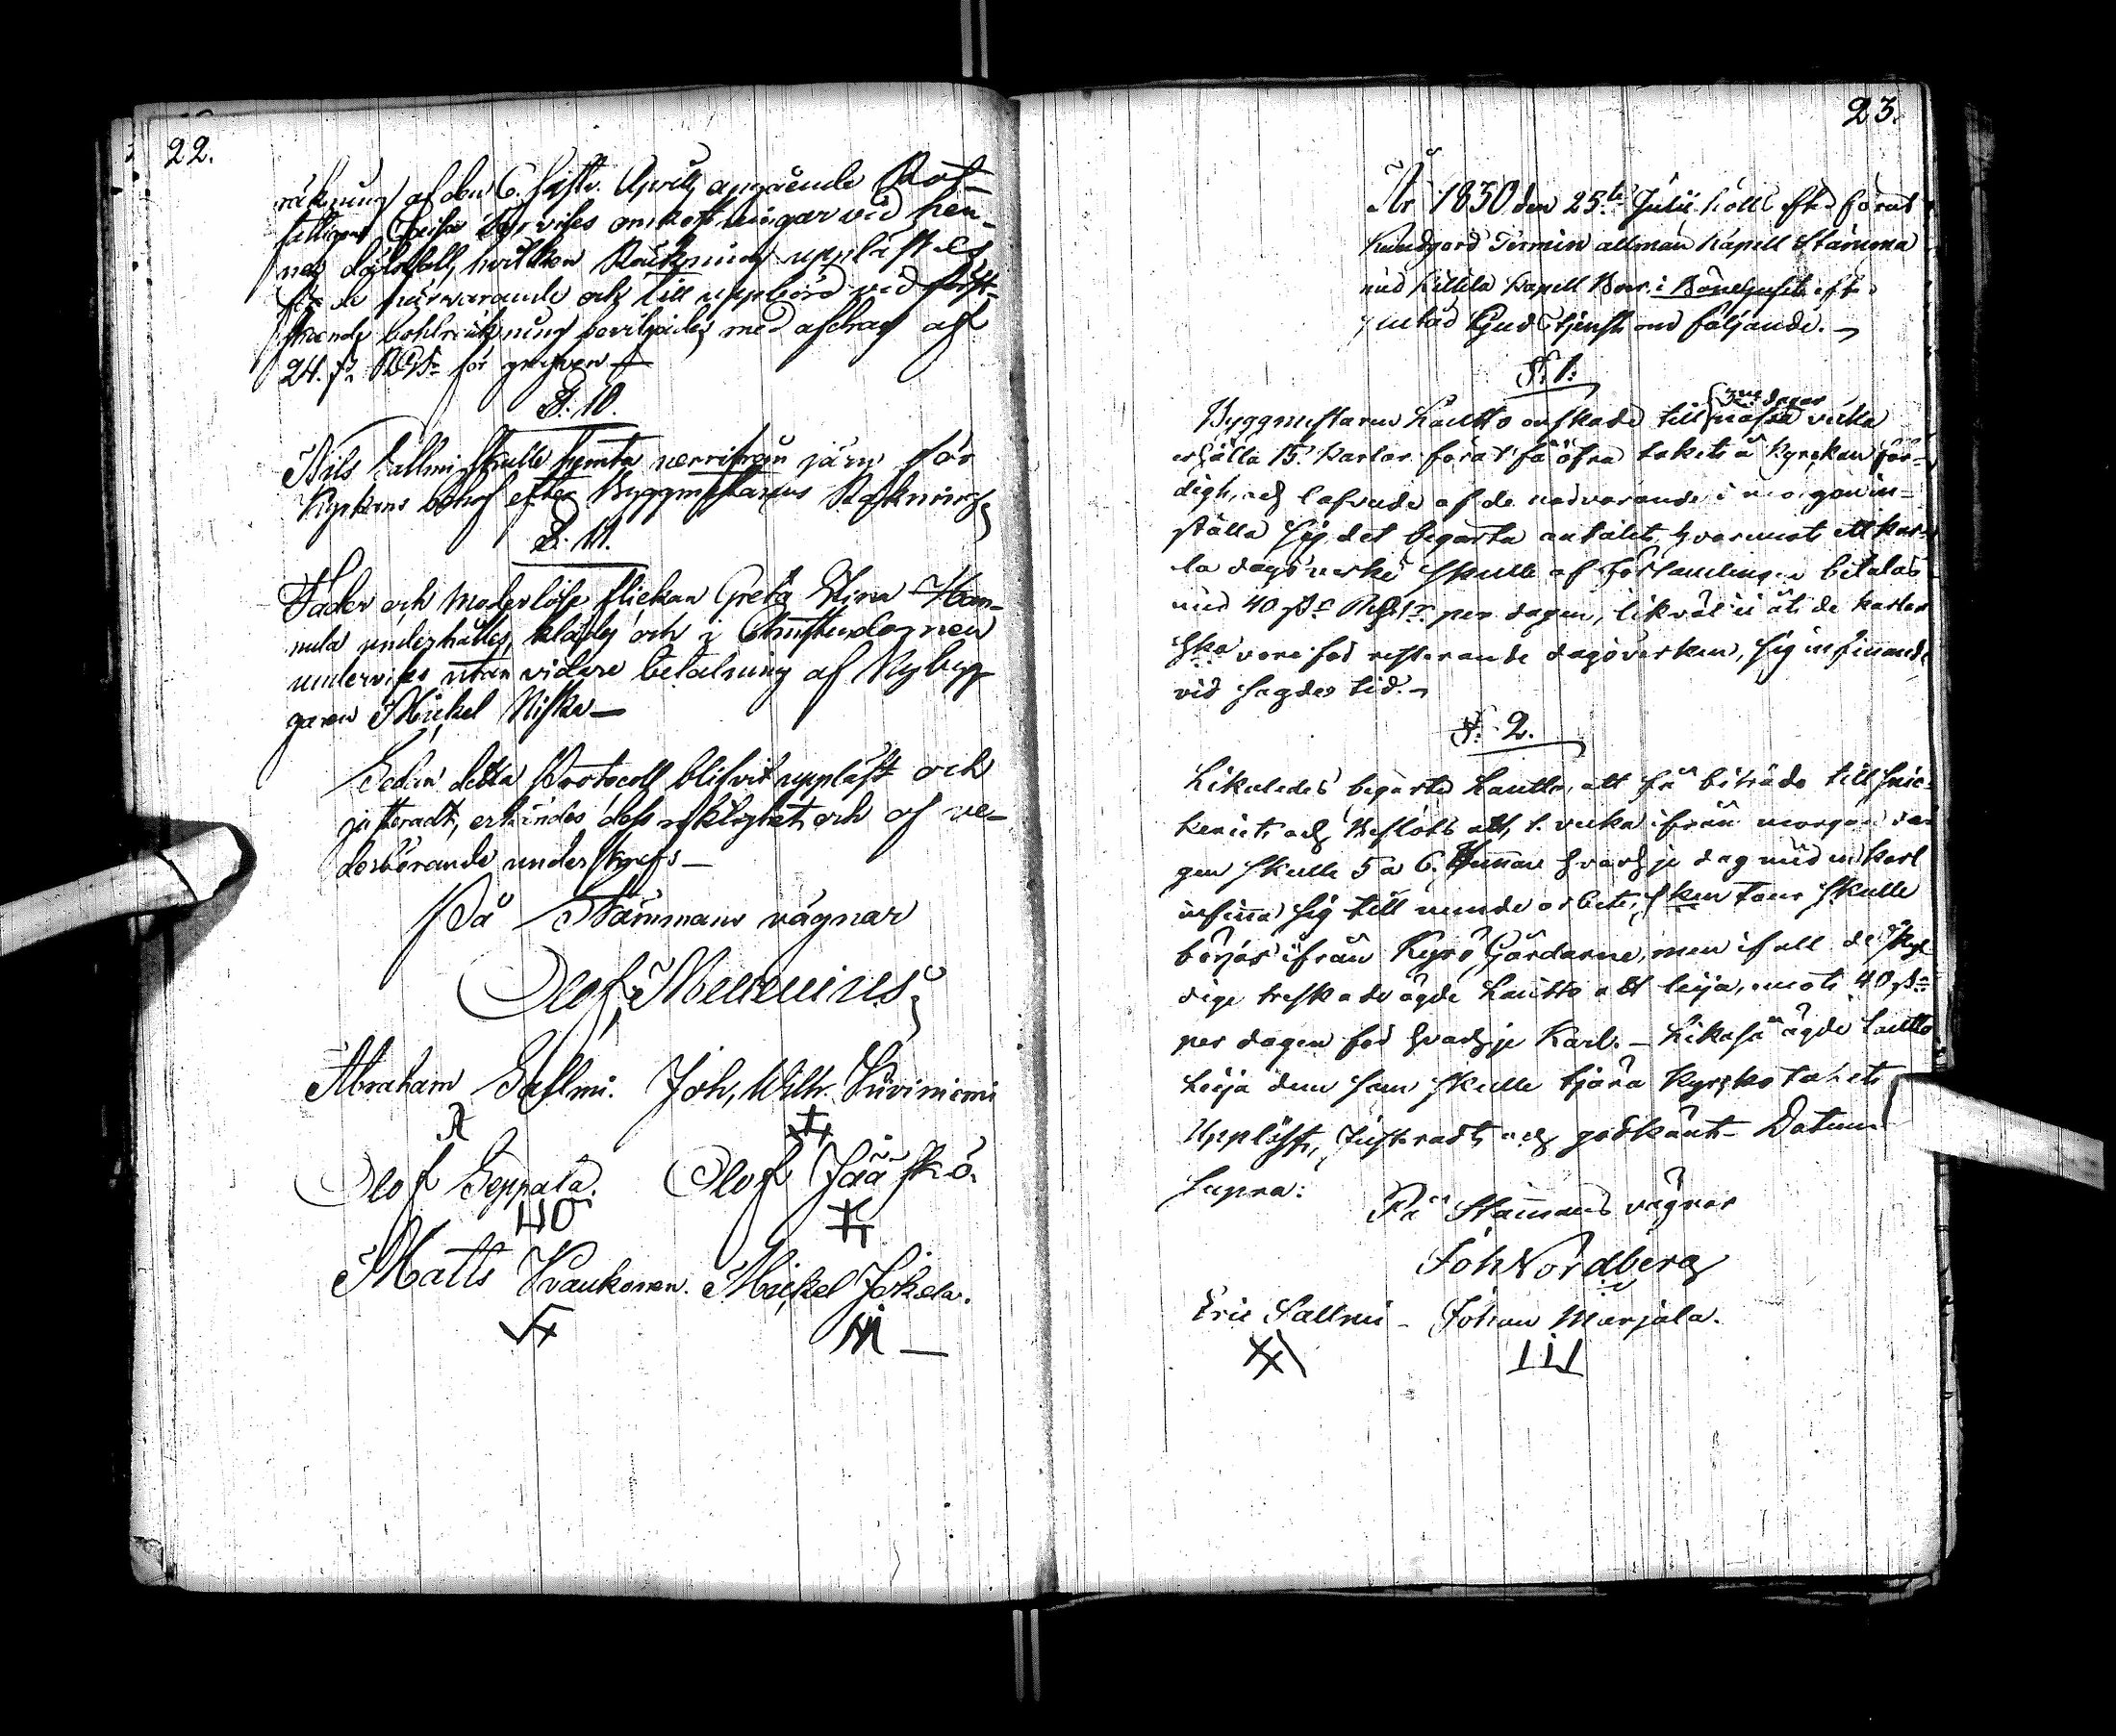 22.
räkning af den 6. sistl. Aprill angående Rot-
fattigens omkostningar vid hen-
nes dödsfall, hvilken Räkning upplästes
för de närvarande och till uppbörd vid först-
med afdrag af
24. sk. RGS. för
§. 10.
Nils Sallmi skulle hemta norrifrån järn för
Kyrkans behof efter Byggmästarens Räkning
§. 11.
Fader och Moderlösa flickan Greta Stina Han-
nula underhålles, klädes och i Christendomen
undervises utan vidare betalning af Nybyg-
garen Mickel Niska —
Sedan detta Protocoll blifvit uppläst och
justeradt, erkändes dess riktighet och af ve-
derbörande underskrefs —
På Stämmans vägnar
Olof Mellenius
Abraham Sallmi. Joh. Wilh. Kiviniemi
Olof Seppälä. Olof Jääskö.
HO
Matts Kaukonen. Mickel Jokela.
23.
År 1830 den 25te Julii hölls efter förut
kundgord Termin allmän Kapell Stämma
med Kittilä Kapell Boer i Bönehuset efter
slutad Gudstjenst om följande.
§. 1:
Byggmästaren Lautto önskade till nästa vecka
erhålla 15. Karlar för at få öfra taket å Kyrckan fär-
digt, och lofvade af de nedvarande i morgon in-
ställa sig det begärta antalet, hvaremot ett kar-
la dagsverke skulle af Församlingen betalas
med 40 sk. RGS. per dagen, likväl å de karlar
ska vara för resterande dagsverken, sig infinande
vid sagde tid.
§. 2.
Likaledes begärte Lautto, att få biträde till snic-
keriet, och Beslöts att, 1. vecka ifrån morgon da-
gen skulle 5 a 6. Hemman hvarje dag med en karl
infinna sig till nämde arbete, skulle
börjas ifrån Kyrö Gårdarne, men ifall de skyl-
dige treskade ägde Lautto att leija, emot 40 sk.
per dagen för hvarje Karl. — Likaså ägde Lautto
Leija dem som skulle tjära Kyrcko taket.
Uppläst, Justeradt och godkänt. Datum
Supra:
På Stämmans vägnar
Joh Nordberg
Eric Sallmi — Johan Marjala.